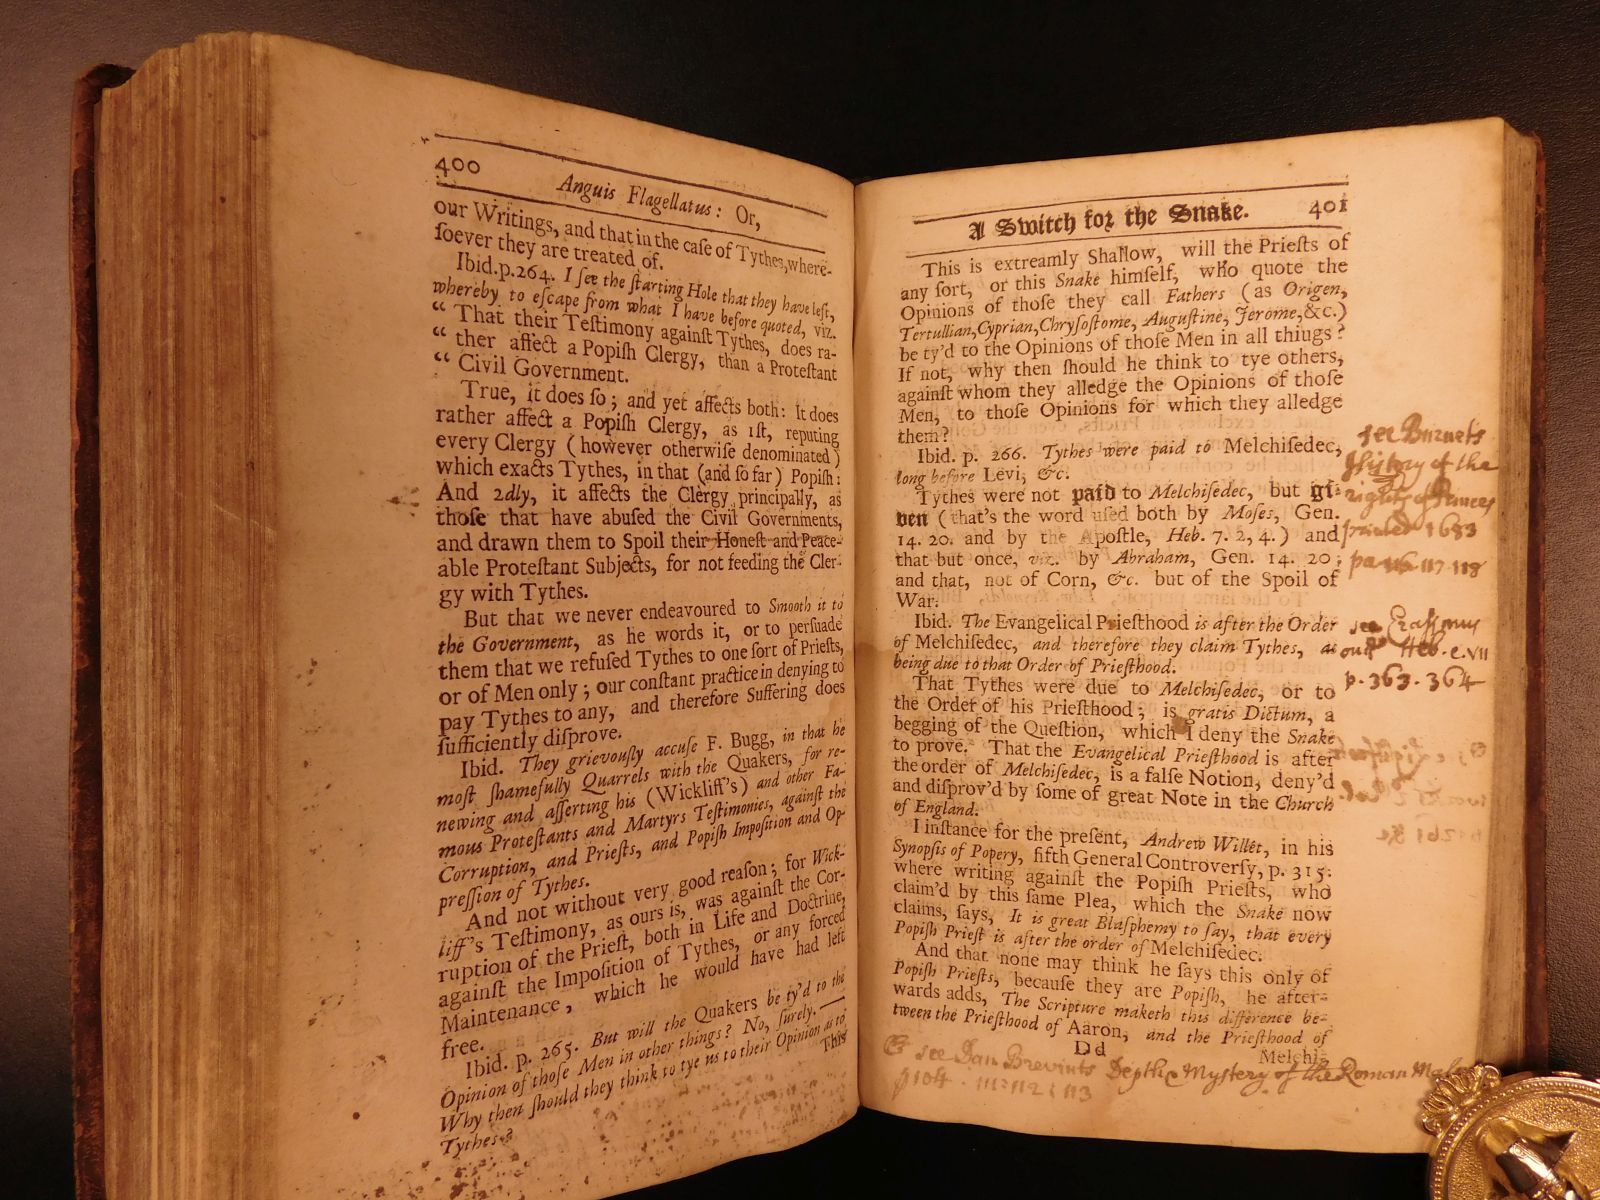 400
Anguis Flagellatus: Or,
our Writings, and that in the caſe of Tythes, where-
ſoever they are treated of.
Ibid. p. 264. I ſee the ſtarting Hole that they have left,
whereby to eſcape from what I have before quoted, viz.
“ That their Teſtimony againſt Tythes, does ra-
“ ther affect a Popiſh Clergy, than a Proteſtant
“ Civil Government.
True, it does ſo; and yet affects both: It does
rather affect a Popiſh Clergy, as 1ſt, reputing
every Clergy (however otherwiſe denominated)
which exacts Tythes, in that (and ſo far) Popiſh:
And 2dly, it affects the Clergy principally, as
thoſe that have abuſed the Civil Governments,
and drawn them to Spoil their Honeſt and Peace-
able Proteſtant Subjects, for not feeding the Cler-
gy with Tythes.
But that we never endeavoured to Smooth it to
the Government, as he words it, or to perſuade
them that we refuſed Tythes to one ſort of Prieſts,
or of Men only; our conſtant practice in denying to
pay Tythes to any, and therefore Suffering does
ſufficiently diſprove.
Ibid. They grievouſly accuſe F. Bugg, in that he
moſt ſhamefully Quarrels with the Quakers, for re-
newing and aſſerting his (Wickliff's) and other Fa-
mous Proteſtants and Martyrs Teſtimonies, againſt the
Corruption, and Prieſts, and Popiſh Impoſition and Op-
preſſion of Tythes.
And not without very good reaſon; for Wick-
liff's Teſtimony, as ours is, was againſt the Cor-
ruption of the Prieſt, both in Life and Doctrine,
againſt the Impoſition of Tythes, or any forced
Maintenance, which he would have had left
free.
Ibid. p. 265. But will the Quakers be ty'd to the
Opinion of thoſe Men in other things? No, ſurely. —
Why then ſhould they think to tye us to their Opinion as to
Tythes?
This
A Switch for the Snake.
401
This is extreamly Shallow, will the Prieſts of
any ſort, or this Snake himſelf, who quote the
Opinions of thoſe they call Fathers (as Origen,
Tertullian, Cyprian, Chryſoſtome, Auguſtine, Jerome, &c.)
be ty'd to the Opinions of thoſe Men in all thiugs?
If not, why then ſhould he think to tye others,
againſt whom they alledge the Opinions of thoſe
Men, to thoſe Opinions for which they alledge
them?
Ibid. p. 266. Tythes were paid to Melchiſedec,
long before Levi, &c.
Tythes were not paid to Melchiſedec, but gi-
ven (that's the word uſed both by Moſes, Gen.
14. 20. and by the Apoſtle, Heb. 7. 2, 4.) and
that but once, viz. by Abraham, Gen. 14. 20;
and that, not of Corn, &c. but of the Spoil of
War.
Ibid. The Evangelical Prieſthood is after the Order
of Melchiſedec, and therefore they claim Tythes, as
being due to that Order of Prieſthood.
That Tythes were due to Melchiſedec, or to
the Order of his Prieſthood; is gratis Dictum, a
begging of the Queſtion, which I deny the Snake
to prove. That the Evangelical Prieſthood is after
the order of Melchiſedec, is a falſe Notion, deny'd
and diſprov'd by ſome of great Note in the Church
of England.
I inſtance for the preſent, Andrew Willet, in his
Synopſis of Popery, fifth General Controverſy, p. 315.
where writing againſt the Popiſh Prieſts, who
claim'd by this ſame Plea, which the Snake now
claims, ſays, It is great Blaſphemy to ſay, that every
Popiſh Prieſt is after the order of Melchiſedec.
And that none may think he ſays this only of
Popiſh Prieſts, becauſe they are Popiſh, he after-
wards adds, The Scripture maketh this difference be-
tween the Prieſthood of Aaron, and the Prieſthood of
Dd
Melchi-
see Burnets
History of the
rights of Princes
printed 1683
pa 116 117 118
see Erasmus
on Heb. c. VII
p. 363. 364
& see Dan Brevints Depth & Mystery of the Roman
p 104 . 111: 112 : 113